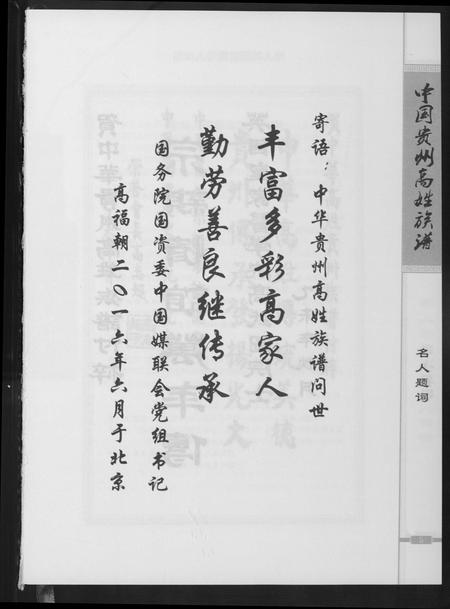 寄语：中华贵州高姓族谱问世
丰富多彩高家人
勤劳善良继传承
国务院国资委中国媒联会党组书记
高福朝二〇一六年六月于北京
中国贵州高姓族谱
名人题词
5